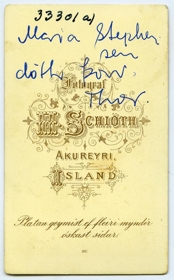 33301 a)
Maria Stephen
sen
dóttir Þorv.
Thor.
Fotograf
Schiöth
AKUREYRI,
ISLAND
Platan geymist ef fleiri myndir
óskast síðar.